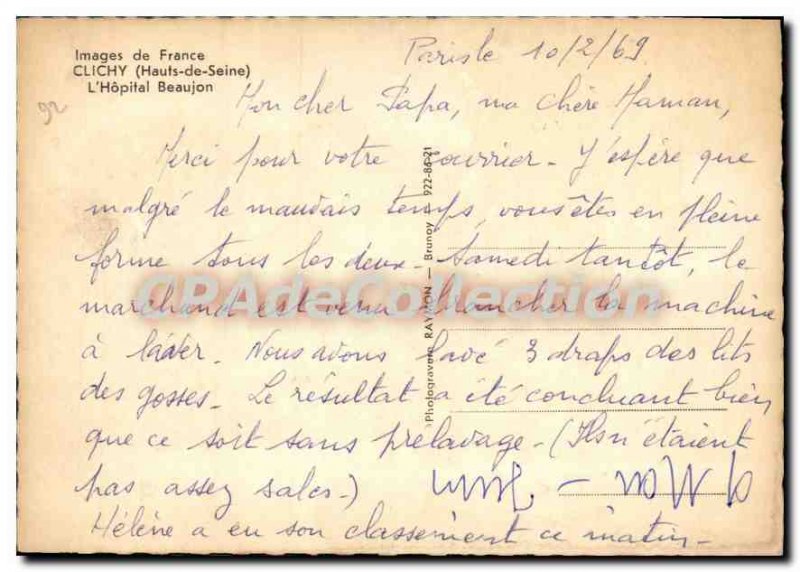 Images de France
CLICHY (Hauts-de-Seine)
L'Hôpital Beaujon
92
Paris le 10/2/69
Mon cher Papa, ma chère Maman,
Merci pour votre courrier - J'espère que
malgré le mauvais temps, vous êtes en pleine
forme tous les deux - Samedi tantôt, le
marchand est venu brancher la machine
à laver. Nous avons lavé 3 draps des lits
des gosses. Le résultat a été concluant bien
que ce soit sans prelavage - (Ils n'étaient
pas assez sales.)
Hélène a eu son classement ce matin -
Photogravure RAYMON — Brunoy 922-86-21
CPAdeCollection